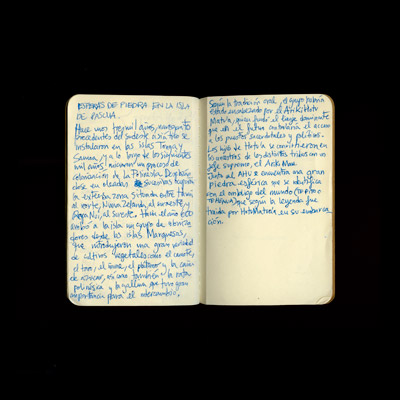 ESFERAS DE PIEDRA EN LA ISLA
DE PASCUA.
Hace unos tres mil años, navegantes
procedentes del sudeste asiático se
instalaron en las islas Tonga y
Samoa, y a lo largo de los siguientes
mil años, iniciaron un proceso de
colonización de la Polinesia. Desplazán
dose en oleadas sucesivas
la extensa zona situada entre Hawai
al norte, Nueva Zelanda, al suroeste, y
Rapa Nui, al sureste. Hacia el año 600
arribó a la isla un grupo de
dores desde las islas Marquesas,
que introdujeron una gran variedad
de cultivos vegetales como el camote,
el taro, el ñame, el plátano y la caña
de azúcar, así como también la rata
polinésica y la gallina que tuvo gran
importancia para el intercambio.
Según la tradición oral, el grupo habría
estado encabezado por el Ariki Hotu
Matu'a, quien fundó el linaje dominante
que en el futuro controlaría el acceso
a los puestos sacerdotales y políticos.
Los hijos de Hotu'a se convirtieron en
los ancestros de las distintas tribus con un
jefe supremo, el Ariki Mau.
Junto al Ahu se encuentra una gran
piedra esférica que se identifica
con el ombligo del mundo (TE PITO O
TE HENUA) que según la leyenda fue
traída por Hotu Matu'a en su embarca
ción.